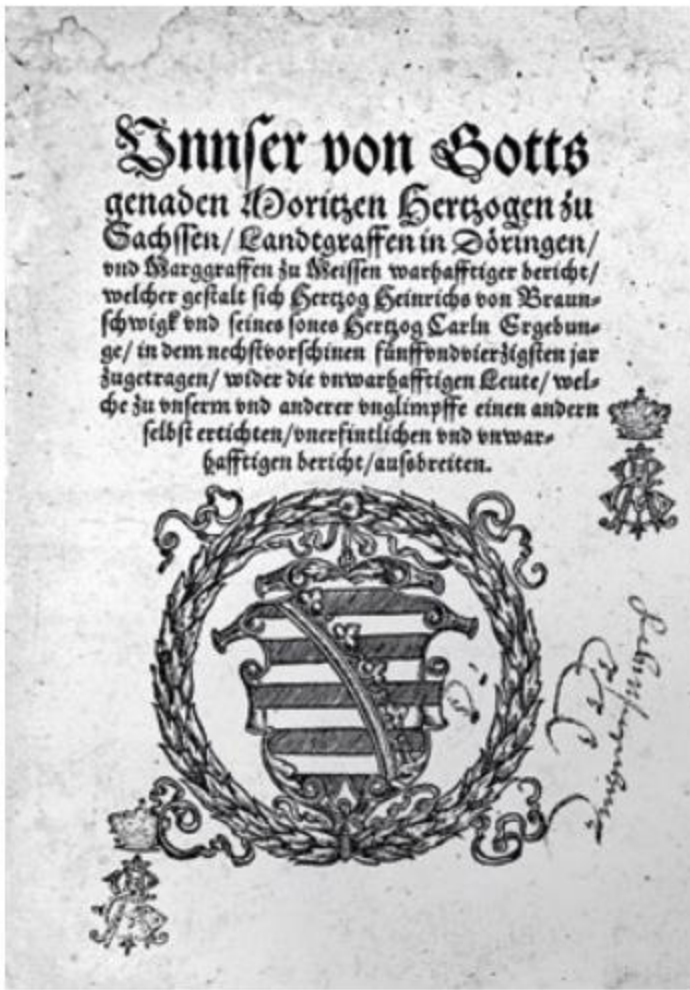 Vnnser von Gotts
genaden Moritzen Hertzogen zu
Sachssen/ Landtgraffen in Döringen/
vnd Marggraffen zu Meissen warhafftiger bericht/
welcher gestalt sich Hertzog Heinrichs von Braun=
schwigk vnd seines sones Hertzog Carln Ergebun=
ge/ in dem nechstvorschinen fünffvndvierzigsten jar
zugetragen/ wider die vnwarhafftigen Leute/ wel=
che zu vnserm vnd anderer vnglimpffe einen andern
selbst ertichten/ vnerfintlichen vnd vnwar=
hafftigen bericht/ aussbreiten.